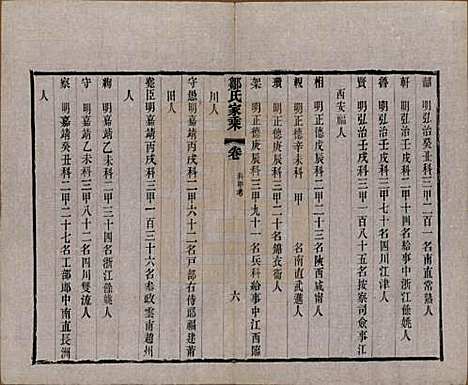 韶　明弘治癸丑科三甲二百一名南直常熟人
軒　明弘治壬戌科二甲十四名給事中浙江餘姚人
魯　明弘治壬戌科三甲一百二名四川江津人
賢　明弘治壬戌科三甲一百八十五名按察司僉事江
西安福人
相　明正德戊辰科三甲二百三名陝西咸甯人
輗　明正德辛未科　甲　名南直武進人
瓚　明正德庚辰科三甲二百十名錦衣衞人
架　明正德庚辰科三甲九十一名兵科給事中江西臨
川人
鄒氏家乘
卷
科第考
六
守愚明嘉靖丙戌科二甲六十二名戸部右侍郎福建莆
田人
堯臣明嘉靖丙戌科三甲一百三十六名參政雲南趙州
人
絢　明嘉靖乙未科二甲三十四名浙江餘姚人
守　明嘉靖乙未科三甲八十二名四川雙流人
察　明嘉靖癸丑科二甲二十七名工部郎中南直長洲
人